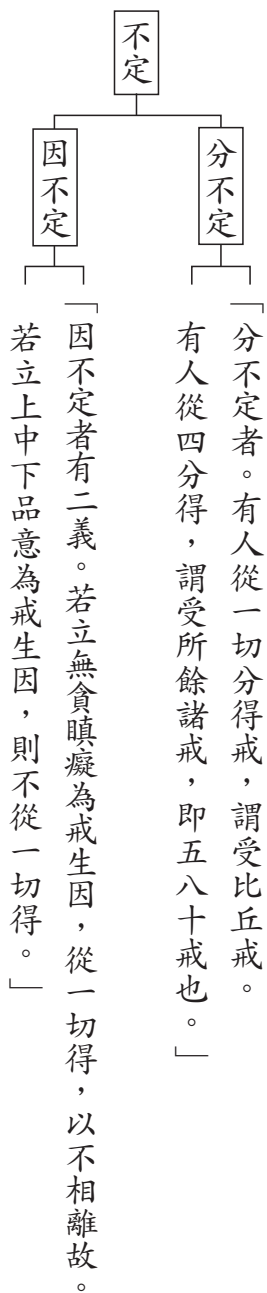 不定
分不定
「分不定者。有人從一切分得戒，謂受比丘戒。
有人從四分得，謂受所餘諸戒，即五八十戒也。」
因不定
「因不定者有二義。若立無貪瞋癡為戒生因，從一切得，以不相離故。
若立上中下品意為戒生因，則不從一切得。」